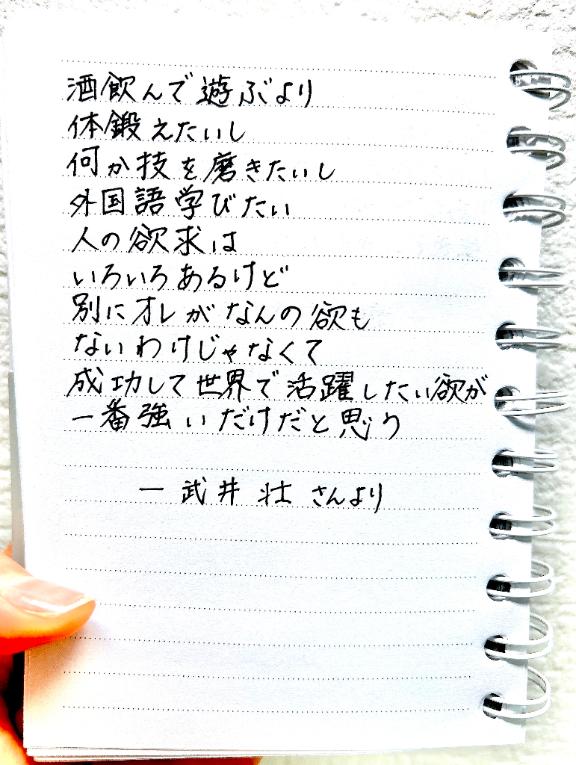 酒飲んで遊ぶより
体鍛えたいし
何か技を磨きたいし
外国語学びたい
人の欲求は
いろいろあるけど
別にオレがなんの欲も
ないわけじゃなくて
成功して世界で活躍したい欲が
一番強いだけだと思う
― 武井壮さんより